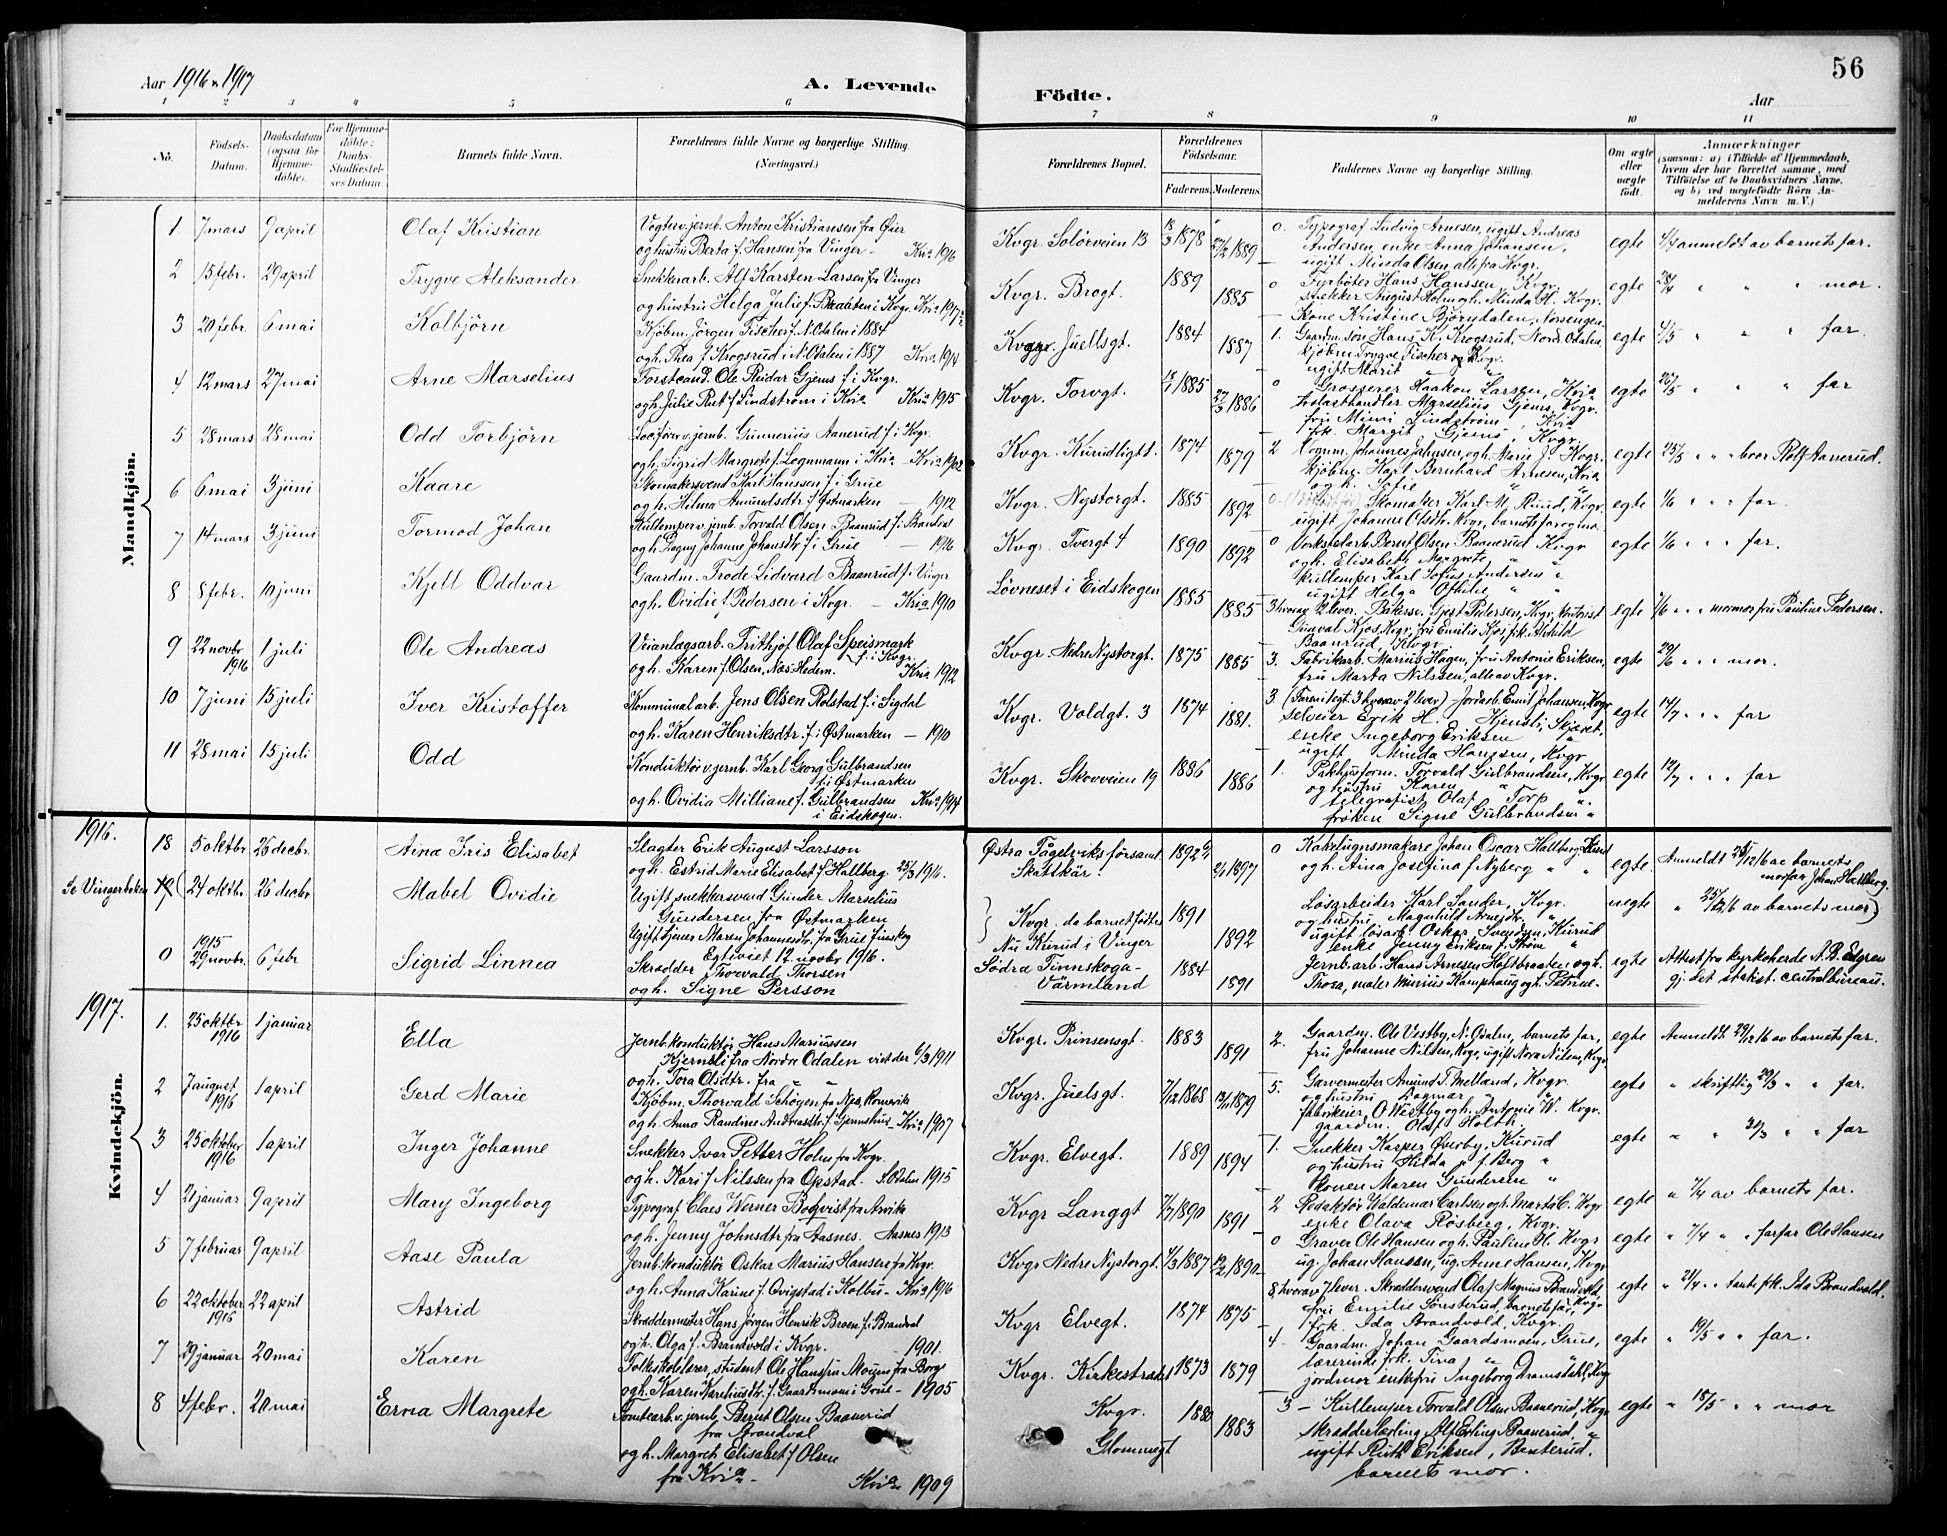 56
Aar 1916 1917
A. Levende Födte.
Aar
1 2 3 4 5 6 7 8 9 10 11
No.
Födsels-Datum.
Daabsdatum (ogsaa for Hjemmedöbte).
For Hjemmedöbte: Daabs-Stadfæstelses Datum.
Barnets fulde Navn.
Forældrenes fulde Navne og borgerlige Stilling. (Næringsvei.)
Forældrenes Bopæl.
Forældrenes Födselsaar.
Faderens. Moderens.
Faddernes Navne og borgerlige Stilling.
Om ægte eller uægte födt.
Anmærkninger
(saasom: a) i Tilfælde af Hjemmedaab, hvem der har forrettet samme, med Tilföielse af to Daabsvidners Navne, og b) ved uægtefödte Börn Anmelderens Navn m. V.)
Mandkjön.
1 7 mars 9 april Olaf Kristian
Vogterv.jernb. Anton Kristiansen fra Øier
og hustru Berta f. Hansen fra Vinger - Kria 1916
Kvgr. Solörveien 13 1878 1889
o. Typograf Ludvig Arnesen, ugift Andreas
Andersen, enke Anna Johansen,
ugift Minda Olsen, alle fra Kvgr.
egte anmeldt av barnets far.
2 15 febr. 29 april Trygve Aleksander
Snekkerarb. Alf Karsten Larsen fra Vinger
og hustru Helga Julie f. Braaten i Kvgr. Kria 1912
Kvgr. Brogt. 1889 1885
o Fyrböter Hans Hanssen, Kvgr.
snekker August Holm og h. Minda H. Kvgr.
Kone Kristine Björndalen, Norsengen.
egte 28/4 " " " mor.
3 20 febr. 6 mai Kolbjörn
Kjöbm. Jörgen Fischer f. N. Odalen i 1884
og h. Thea f. Krogsrud i N. Odalen i 1887 Kria 1914
Kvgr. Juellsgt. 1884 1887
1. Gaardm. sön Hans K. Krogsrud, Nord. Odalen
kjöbm. Trygve Fischer, Kvgr.
ugift Marit
egte 4/5 " " " far.
4 12 mars 27 mai Arne Marselius
Forstcand. Ole Reidar Gjems f. i Kvgr.
og h. Julie Rut f. Lindstrøm i Kria Kria 1915
Kvgr. Torvgt. 1885 1886
o Grosserer Haakon Larsen, Kria
trelasthandler Marselius Gjems, Kvgr.
fru Mimi Lindstrøm, Kria
frk. Margit Gjems, Kvgr.
egte 20/5 " " " far
5 28 mars 28 mai Odd Torbjörn
Locförer v. jernb. Gunnerius Aanerud f. i Kvgr.
og h. Sigrid Margrete f. Legnmann i Kria - Kria 1902
Kvgr. Kurudligt. 1874 1879
2 Vognm. Johannes Jahnsen, og h. Marie J. Kvgr.
kjöbm. Karl Bernhard Arnesen, Kria
og h. Sofie
egte 25/5 " " bror Rolf Aanerud.
6 6 mai 3 juni Kaare
Skomakersvend Karl Hanssen f. i Grue
og h. Hilma Amundsdtr. f. Østmarken - 1912
Kvgr. Nystorgt. 1885 1892
Skomaker Karl M. Ruud, Kvgr.
ugift Johanne Olsdtr. Kvgr, barnets far og mor.
egte 1/6 " " " far.
7 14 mars 3 juni Tormod Johan
Kullemper v. jernb. Torvald Olsen Baanrud f. i Brandval
og h. Ragny Johanne Johansdtr. f. i Grue - 1916
Kvgr. Tvergt 4 1890 1892
o Verkstedarb. Bernt Olsen Baanerud Kvgr
og h. Elisabeth Margrete "
Kullemper Karl Sofus Andersen "
ugift Helga Othilie "
egte 1/6 " " " far.
8 8 febr. 10 juni Kjell Oddvar
Gaardm. Frode Lidvard Baanrud f. i Vinger
og h. Ovidie f. Pedersen i Kvgr. - Kria 1910
Løvneset i Eidskogen 1885 1885
3 hvorav 2 lever. Bakersv. Gjert Pedersen, Kvgr, kontorist
Gunval Kjos, Kvgr, fru Emilie Kjos, frk. Arhild
Baanrud, Kvgr.
egte 1/6 " " " mormor fru Pauline Pedersen.
9 22 novbr 1916 1 juli Ole Andreas
Veianlægsarb. Frithjof Olaf Speismark f. i Kvgr.
og h. Karen f. Olsen, Nes Hedem. Kria 1912
Kvgr. Nedre Nystorgt. 1875 1885
3. Fabrikarb. Marius Hagen, fru Antonie Eriksen,
fru Marta Nilssen, alle av Kvgr.
egte 29/6 " " " mor.
10 7 juni 15 juli Iver Kristoffer
Kommunalarb. Jens Olsen Rolstad f. i Sigdal
og h. Karen Henriksdtr. f. i Østmarken - 1910
Kvgr. Voldgt. 3 1874 1881.
3 (Far en i egt. 3 hvorav 2 lever) Jordarb. Emil Johansen, Kvgr
selveier Erik H. Kjensli, Skjæret,
enke Ingeborg Eriksen "
ugift Minda Hanssen, Kvgr
egte 14/7 " " " far
11 28 mai 15 juli Odd
Konduktör v. jernb. Karl Georg Gulbrandsen f. i Østmarken
og h. Ovidia Milliane f. Gulbrandsen i Eidskogen. Kria 1914
Kvgr. Skovveien 19 1886 1886
1. Pakhusform. Torvald Gulbrandsen, Kvgr
og hustru Karen "
telegrafist Olaf Torp "
fröken Signe Gulbrandsen "
egte 12/7 " " " far
1916.
18 5 oktbr 26 decbr. Aina Iris Elisabet
Slagter Erik August Larsson
og h. Estrid Marie Elisabet f. Hallberg. 25/3 1916.
Østra Fågelviks församl. Skatskär. 1892 1897
o Kakelugnsmakare Johan Oscar Hallberg, Karlst
og h. Aina Josefina f. Nyberg " "
egte. Anmeldt 21/12 16 av barnets
morfar Johan Hallberg.
Se Vingerboken 19 24 oktbr. 26 decbr Mabel Ovidie
Ugift snekkersvend Gunder Marselius
Gundersen fra Østmarken
Ugift tjener Maren Johannesdtr. fra Grue Finskog
Egteviet 12 novbr 1916.
Kvgr. da barnet födtes
Nu Kurud i Vinger 1891 1892
Lösarbeider Karl Sander, Kvgr.
og hustru Magnhild Arnesdtr. "
ugift lösarb. Oskar Svendsen, Kurud
enke Jenny Eriksen f. Thom "
uegte " 25/12 16 av barnets mor)
0 1915 29 novbr. 6 febr Sigrid Linnea
Skrædder Thorvald Thorsen
og h. Signe Persson
Södra Finnskoga - Värmland 1884 1891
Jernb. arb. Hans Arnesen Holtbraaten og h.
Thora, maler Minius Kamphaug og h. Petrine.
egte Attest fra kyrkoherde A. B. Edgren
gj. det statist. centralbureau.
1917.
Kvindekjön.
1. 25 oktbr. 1916 1 januar Ella
Jernb. konduktör Hans Mariussen
Kjernsli fra Nordre Odalen viet der 6/3 1911
og h. Tora Olsdtr. fra " "
Kvgr. Prinsensgt. 1883 1891
2. Gaardm. Ole Vestby, N. Odalen, barnets far,
fru Johanne Nilsen, Kvgr, ugift Nora Nilsen, Kvgr
egte Anmeldt 29/12 16 av barnets far.
2 7 august 1916 1 april Gerd Marie
Kjöbm. Thorvald Schøyen fra Nes, Romerik
og h. Anna Randine Andreasdtr. f. Gjemshus - Kria 1907
Kvgr. Juelsgt. 7/12 1868 1879
5. Garvermester Amund T. Melland, Kvgr.
og hustru Dagmar "
fabrikeier, O. Westby og h. Antonie W. Kvgr.
gaardm. Olaf Holth.
egte " skriftlig 29/3 " " far.
3 25 oktober 1916 1 april Inger Johanne
Snekker Ivar Petter Holen fra Kvgr.
og h. Kari f. Nilssen fra Opstad. S. Odalen 1915
Kvgr. Elvegt. 1889 1894
1. Snekker Kasper Øverby, Kurud
og hustru Hilda " f. Berg "
Konen Maren Gundersen "
egte " " 30/3 " " far
4 21 januar 9 april Mary Ingeborg
Typograf Claes Werner Boqvist fra Arvika
og h. Jenny Johnsdtr. fra Aasnes. Aasnes 1913
Kvgr Langgt 1890 1891
2 Redaktör Waldemar Carlsen og h. Marta C. Kvgr
enke Olava Rosberg, Kvgr.
egte " 7/4 av barnets far.
5 7 februar 9 april Aase Paula
Jernb. konduktör Oskar Marius Hansen fra Kvgr.
og h. Anna Karine f. Qvigstad i Kolbu - Kria 1916
Kvgr Nedre Nystorgt. 1/3 1887 1890
o Graver Ole Hansen og h. Pauline H. Kvgr
ug. Johan Hansen, ug. Arne Hansen, Kvgr
egte " 7/4 " " farfar Ole Hansen
6 22 oktober 1916 22 april Astrid
Skræddermester Hans Jörgen Henrik Broen f. i Brandval
og h. Olga f. Brandvold i Kvgr. - 1901.
Kvgr Elvegt. 1874 1875
8 hvorav 7 lever. Skræddersvend Olaf Magnus Brandvold,
fru Emilie Sønsterud, barnets far, Kvgr
frk. Ida Brandvold, Kvgr.
egte " 21/4 " " tante frk. Ida Brandvold.
7 29 januar 20 mai Karen
Folkskolelærer, student Ole Hansen Moum fra Borge
og h. Karen Kareliusdtr. f. Gaardsmoen i Grue - 1905
Kvgr. Kirkestrædet 1873 1879
4 - Gaardm. Johan Gaardsmoen, Grue,
lærerinde frk. Tiva " "
jordmor enkefru Ingeborg Dramsdahl, Kvgr
egte " 19/5 " " far.
8 4 febr. 20 mai Erna Margrete
Tomtearb. v. jernb. Bernt Olsen Baanerud
fra Brandval
og h. Margreth Elisabet f. Olsen
fra Kria - Kria 1909
Kvgr. Glommegt 1880 1883
3 - Kullemper Torvald Olsen Baanerud, Kvgr
skrædderlærling Alf Erling Baanerud, "
ugift Ruth Eriksen, Benterud.
barnets mor.
egte " 18/5 " " mor